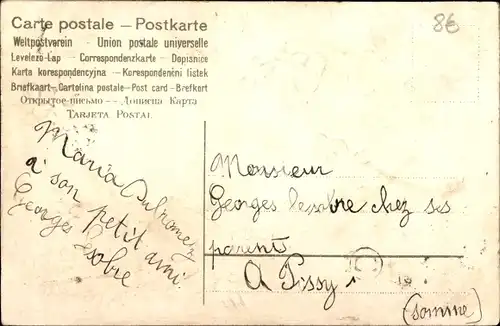 Carte postale — Postkarte
Weltpostverein - Union postale universelle
Levelező-Lap - Correspondenzkarte - Dopisnice
Karta korespondencyjna - Korespondenční listek
Briefkaart - Cartolina postale - Post card - Brefkort
Открытое письмо - Дописна Карта
TARJETA POSTAL
8€
Maria
à son petit ami
Georges Lesobre
Monsieur
Georges Lesobre chez ses
parents
A Pissy
(Somme)